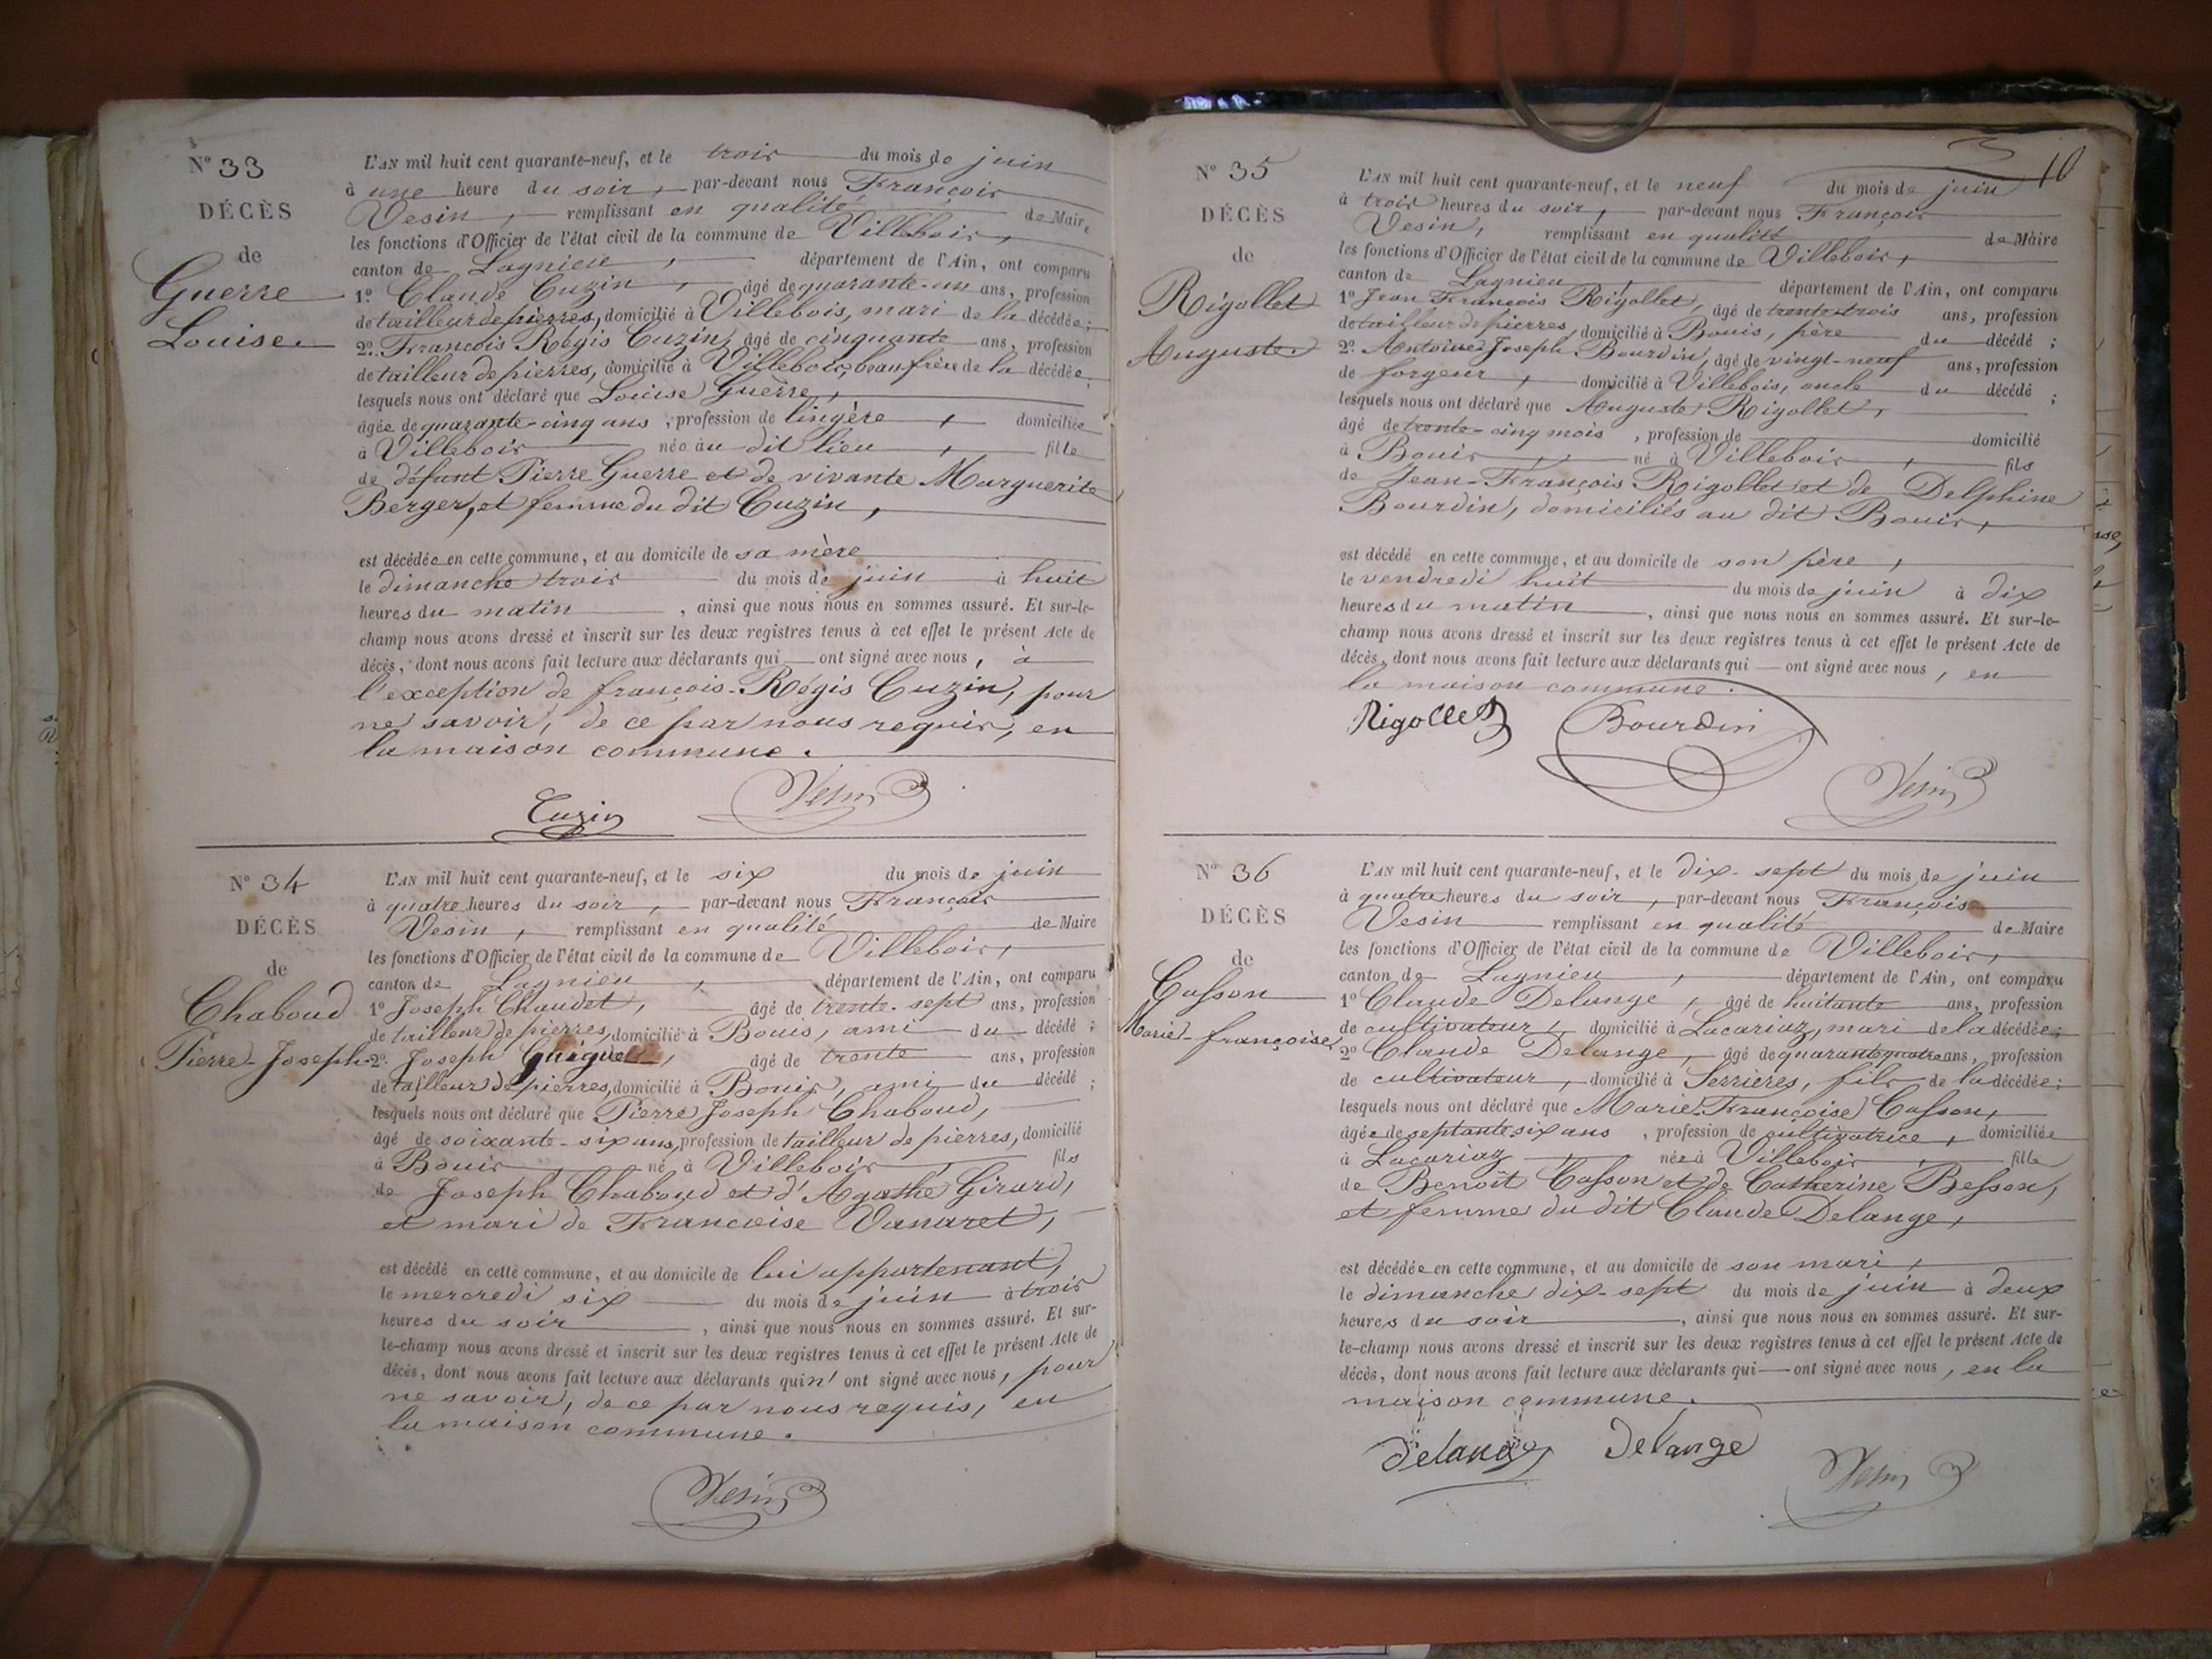 N° 33
DÉCÈS
de
Guerre
Louise
L'AN mil huit cent quarante-neuf, et le trois du mois de juin
à une heure du soir, par-devant nous François
Vesin, remplissant en qualité de Maire
les fonctions d'Officier de l'état civil de la commune de Villebois,
canton de Lagnieu, département de l'Ain, ont comparu
1° Claude Cuzin, âgé de quarante-un ans, profession
de tailleur de pierres, domicilié à Villebois, mari de la décédée;
2° François Régis Cuzin, âgé de cinquante ans, profession
de tailleur de pierres, domicilié à Villebois, beau frère de la décédée,
lesquels nous ont déclaré que Louise Guerre,
âgée de quarante-cinq ans, profession de lingère, domiciliée
à Villebois née au dit lieu, fille
de défunt Pierre Guerre et de vivante Marguerite
Berger, et femme du dit Cuzin,
est décédée en cette commune, et au domicile de sa mère
le dimanche trois du mois de juin à huit
heures du matin, ainsi que nous nous en sommes assuré. Et sur-le-
champ nous avons dressé et inscrit sur les deux registres tenus à cet effet le présent Acte de
décès, dont nous avons fait lecture aux déclarants qui ont signé avec nous, à
l'exception de françois-Régis Cuzin, pour
ne savoir, de ce par nous requis, en
la maison commune.
Cuzin Vesin
N° 34
DÉCÈS
de
Chaboud
Pierre-Joseph
L'AN mil huit cent quarante-neuf, et le six du mois de juin
à quatre heures du soir, par-devant nous François
Vesin, remplissant en qualité de Maire
les fonctions d'Officier de l'état civil de la commune de Villebois,
canton de Lagnieu, département de l'Ain, ont comparu
1° Joseph Chaudet, âgé de trente-sept ans, profession
de tailleur de pierres, domicilié à Bouis, ami du décédé;
2° Joseph âgé de trente ans, profession
de tailleur de pierres, domicilié à Bouis, ami du décédé;
lesquels nous ont déclaré que Pierre Joseph Chaboud,
âgé de soixante-six ans, profession de tailleur de pierres, domicilié
à Bouis, né à Villebois, fils
de Joseph Chaboud et d'Agathe Girard,
et mari de Francoise Vanaret,
est décédé en cette commune, et au domicile de lui appartenant,
le mercredi six du mois de juin à trois
heures du soir, ainsi que nous nous en sommes assuré. Et sur-
le-champ nous avons dressé et inscrit sur les deux registres tenus à cet effet le présent Acte de
décès, dont nous avons fait lecture aux déclarants qui n'ont signé avec nous, pour
ne savoir, de ce par nous requis, en
la maison commune.
Vesin
10
N° 35
DÉCÈS
de
Rigollet
Auguste.
L'AN mil huit cent quarante-neuf, et le neuf du mois de juin
à trois heures du soir, par-devant nous François
Vesin, remplissant en qualité de Maire
les fonctions d'Officier de l'état civil de la commune de Villebois,
canton de Lagnieu, département de l'Ain, ont comparu
1° Jean François Rigollet, âgé de trente-trois ans, profession
de tailleur de pierres, domicilié à Bouis, père du décédé;
2° Antoine Joseph Bourdin, âgé de vingt-neuf ans, profession
de forgeur, domicilié à Villebois, oncle du décédé;
lesquels nous ont déclaré que Auguste Rigollet,
âgé de trente-cinq mois, profession de domicilié
à Bouis, né à Villebois, fils
de Jean-François Rigollet et de Delphine
Bourdin, domiciliés au dit Bouis,
est décédé en cette commune, et au domicile de son père,
le vendredi huit du mois de juin à dix
heures du matin, ainsi que nous nous en sommes assuré. Et sur-le-
champ nous avons dressé et inscrit sur les deux registres tenus à cet effet le présent Acte de
décès, dont nous avons fait lecture aux déclarants qui ont signé avec nous, en
la maison commune.
Rigollet Bourdin
Vesin
N° 36
DÉCÈS
de
Casson
Marie-françoise
L'AN mil huit cent quarante-neuf, et le dix-sept du mois de juin
à quatre heures du soir, par-devant nous François
Vesin remplissant en qualité de Maire
les fonctions d'Officier de l'état civil de la commune de Villebois,
canton de Lagnieu, département de l'Ain, ont comparu
1° Claude Delange, âgé de huitante ans, profession
de cultivateur, domicilié à Lacariaz, mari de la décédée;
2° Claude Delange, âgé de quarante quatre ans, profession
de cultivateur, domicilié à Serrières, fils de la décédée;
lesquels nous ont déclaré que Marie-Françoise Casson,
âgée de septante six ans, profession de cultivatrice, domiciliée
à Lacariaz, née à Villebois, fille
de Benoît Casson et de Catherine Besson,
et femme du dit Claude Delange,
est décédée en cette commune, et au domicile de son mari,
le dimanche dix-sept du mois de juin à deux
heures du soir, ainsi que nous nous en sommes assuré. Et sur-
le-champ nous avons dressé et inscrit sur les deux registres tenus à cet effet le présent Acte de
décès, dont nous avons fait lecture aux déclarants qui ont signé avec nous, en la
maison commune.
Delange Delange Vesin